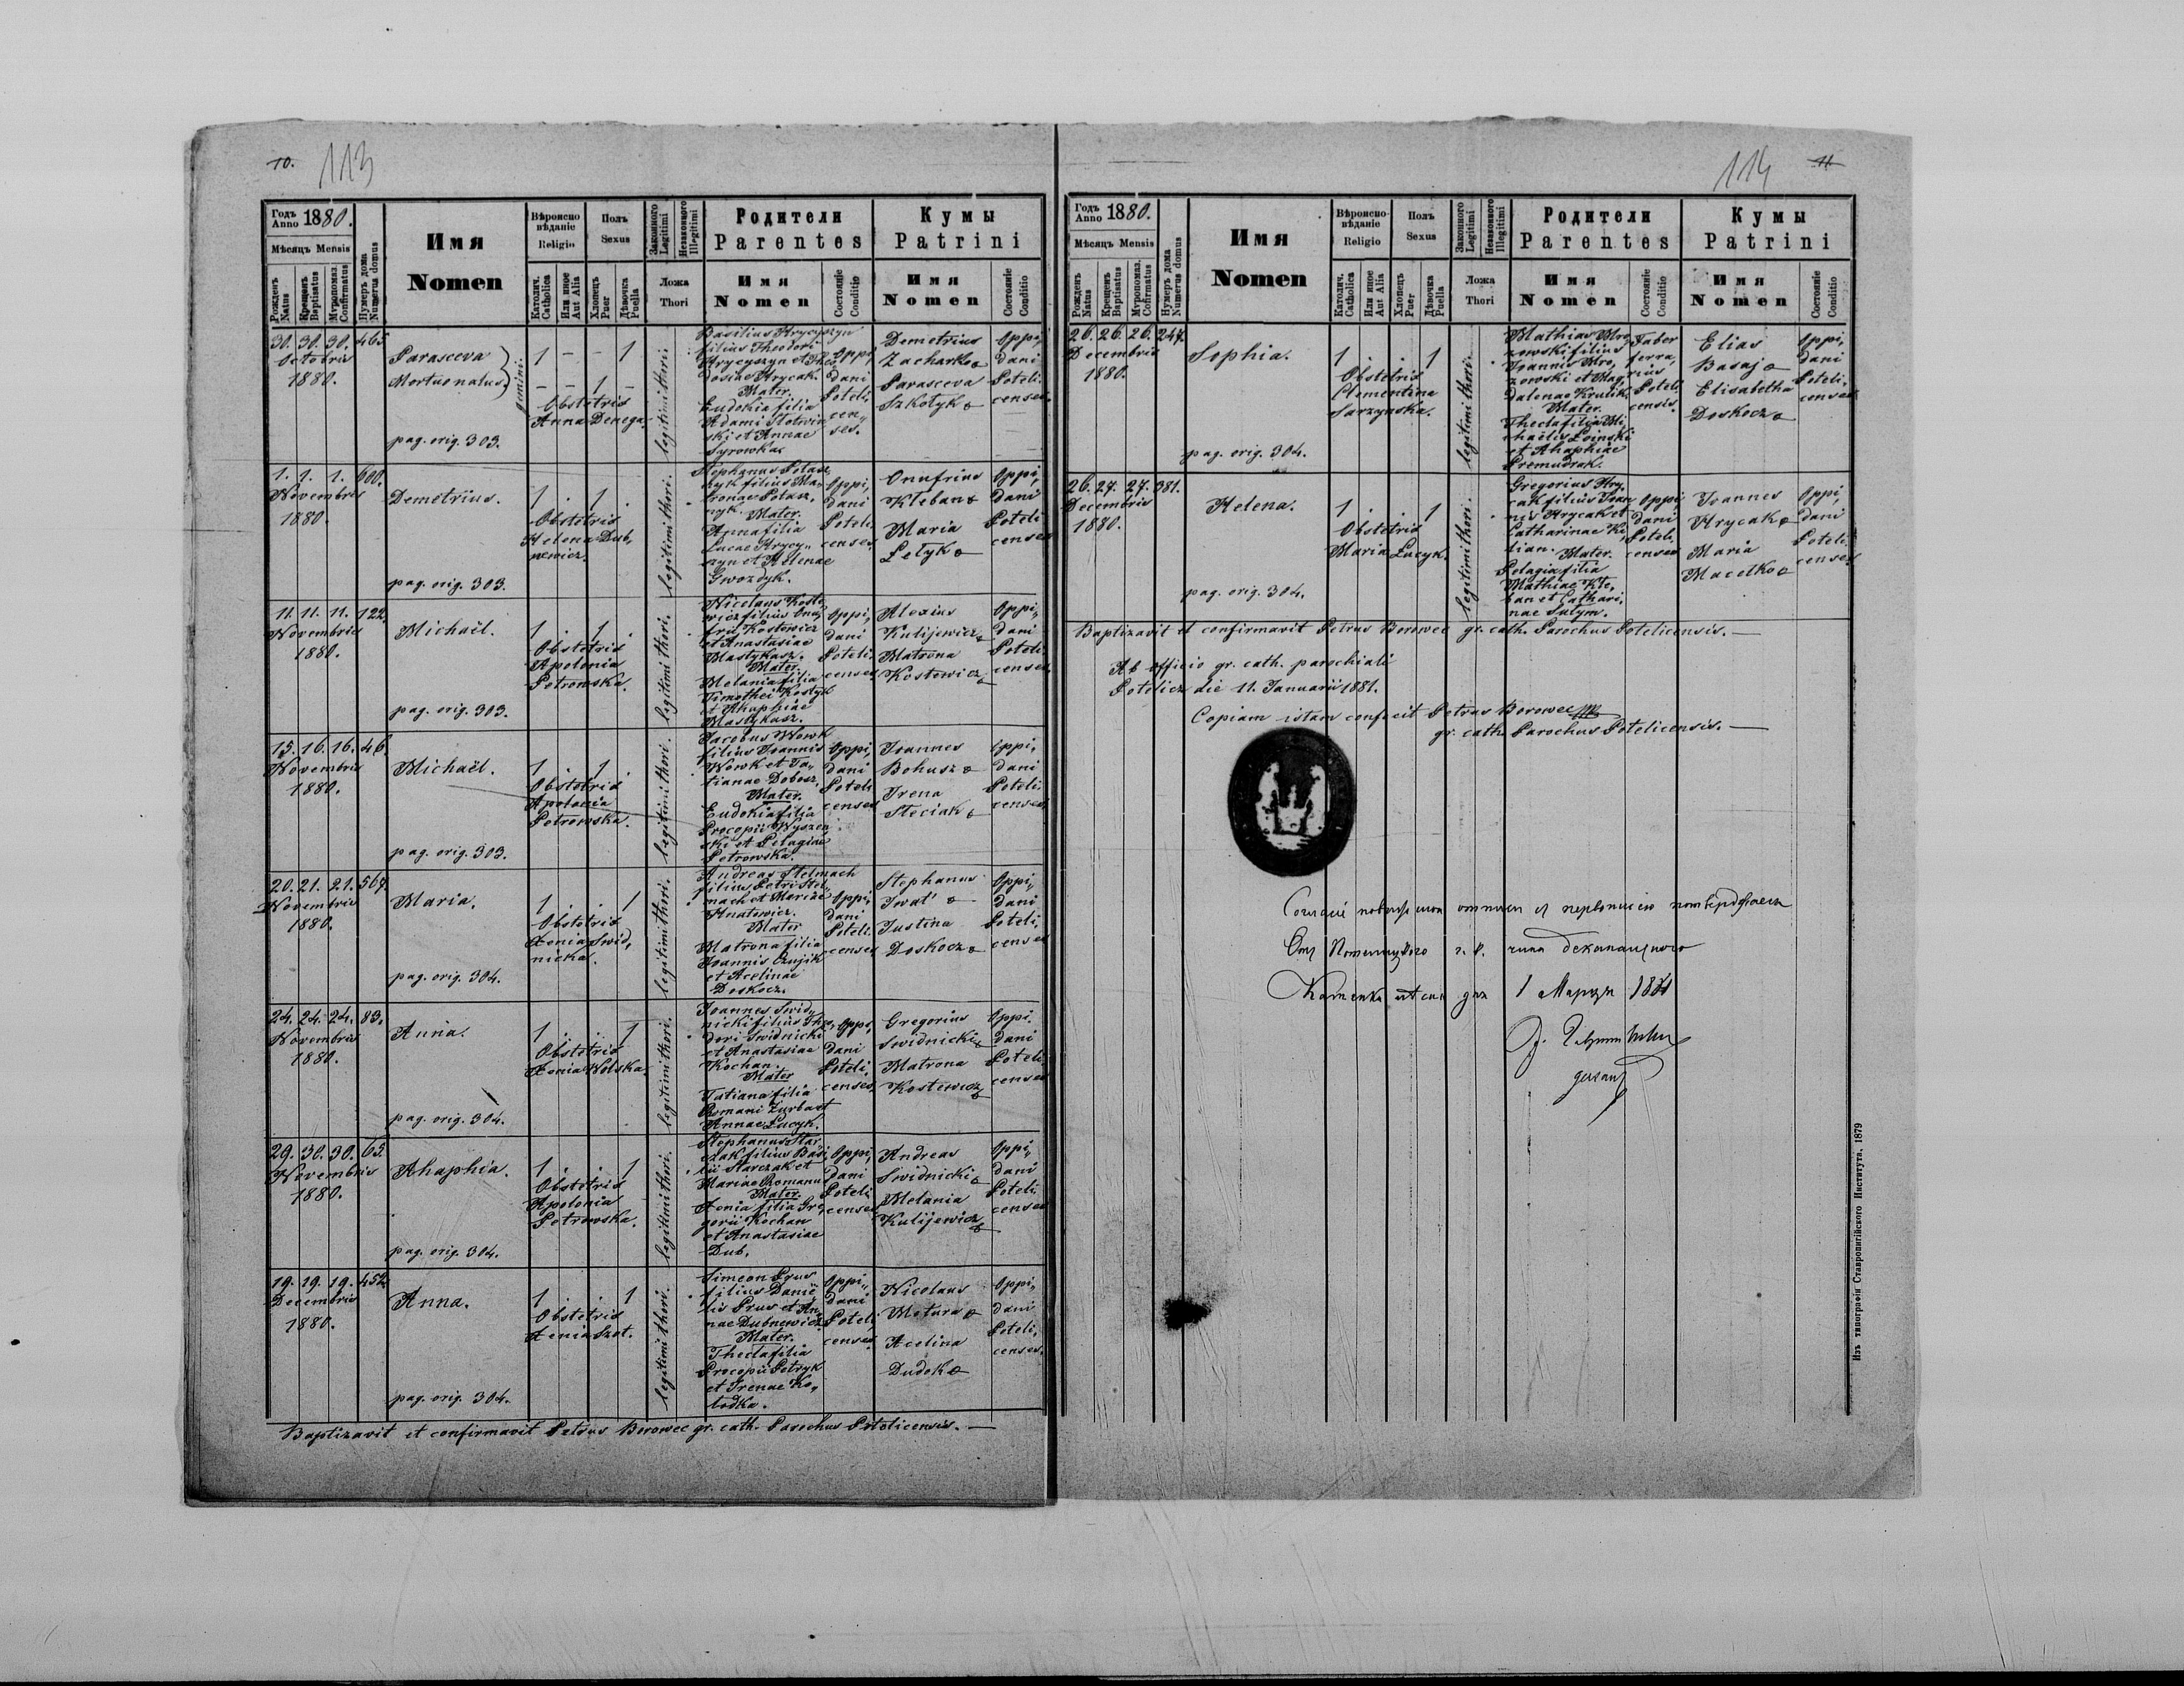 10. 113
Годъ Anno 1880.
Мѣсяцъ Mensis
Рожденъ Natus
Крещенъ Baptisatus
Мѵропомаз. Confirmatus
Нумеръ дома Numerus domus
Имя
Nomen
Вѣроисповѣданіе
Religio
Католич. Catholica
Или иное Aut Alia
Полъ
Sexus
Хлопецъ Puer
Дѣвочка Puella
Законного Legitimi
Незаконного Illegitimi
Ложа
Thori
Родители
Parentes
Имя
Nomen
Состояніе Conditio
Кумы
Patrini
Имя
Nomen
Состояніе Conditio
30. 30. 30. 465
Octobris
1880.
Parasceva
Mortuo natus
gemini
1 - - 1
- - 1 -
Obstetrix
Anna Denega
pag. orig. 303.
legitimi thori.
Basilius Hrycyszyn
filius Theodori
Hrycyszyn et Theo
dosiae Hrycak.
Mater.
Eudokia filia
Adami
ski et Annae
Syrowka.
Oppi,
dani
Poteli,
cen"
ses.
Demetrius
Zacharko
Parasceva
Szkolyk
Oppi,
dani
Poteli.
censes.
1. 1. 1. 600.
Novembris
1880.
Demetrius.
1 . 1 .
Obstetrix
Helena Dub,
newicz.
pag. orig. 303.
legitimi thori.
Stephanus Potasz,
nyk filius Ma,
tronae Potasz,
nyk. Mater.
Anna filia
Lucae Hrycy"
szyn et Helenae
Gwozdyk.
Oppi,
dani
Poteli,
censes
Onufrius
Kleban
Maria
Letyk
Oppi,
dani
Poteli
censes
11. 11. 11. 122
Novembris
1880.
Michaël.
1 . 1 .
Obstetrix
Apolonia
Petrowska.
pag. orig. 303.
legitimi thori.
Nicolaus Koste
wicz filius Onu,
frii Kostewicz
et Anastasiae
Mastykasz.
Mater.
Melania filia
Timothei Kostyk
et Ahaphiae
Mastykasz.
Oppi,
dani
Poteli.
censes
Alexius
Kulijewicz
Matrona
Kostewicz
Oppi,
dani
Poteli
censes
15. 16. 16. 46
Novembris
1880.
Michaël.
1 . 1 .
Obstetrix
Apolonia
Petrowska.
pag. orig. 303.
legitimi thori.
Jacobus Wowk
filius Joannis
Wowk et Ta"
tianae Dobosz,
Mater.
Eudokia filia
Procopii Wyszen
ski et Pelagiae
Petrowska.
Oppi,
dani
Poteli
censes
Joannes
Bohusz
Irena
Steciak
Oppi,
dani
Poteli.
censes.
20. 21. 21. 567.
Novembris
1880.
Maria.
1 . . 1
Obstetrix
Xenia Swid,
nicka.
pag. orig. 304.
legitimi thori.
Andreas Stelmach
filius Petri Stel"
mach et Mariae
Hnatewicz.
Mater
Matrona filia
Joannis Czujik
et Acelinae
Doskocz.
Oppi,
dani
Poteli.
censes
Stephanus
Iwat'
Justina
Doskocz
Oppi,
dani
Poteli,
censes
24. 24. 24. 83.
Novembris
1880.
Anna.
1 . . 1
Obstetrix
Xenia Wolska.
pag. orig. 304.
legitimi thori.
Joannes Swid,
nicki filius Theo,
dori Swidnicki
et Anastasiae
Kochan.
Mater
Tatiana filia
Romani Zurba et
Annae Lucyk.
Oppi,
dani
Poteli,
censes
Gregorius
Swidnicki
Matrona
Kostewicz
Oppi.
dani
Poteli
censes
29. 30. 30. 65.
Novembris
1880.
Ahaphia.
1 . . 1
Obstetrix
Apolonia
Petrowska.
pag. orig. 304.
legitimi thori.
Stephanus Star
czak filius Basi
lii Starczak et
Mariae Romanu
Mater.
Xenia filia Gre,
gorii Kochan
et Anastasiae
Dub.
Oppi,
dani
Poteli.
censes
Andreas
Swidnicki
Melania
Kulijewicz
Oppi,
dani
Poteli.
censes
19. 19. 19. 452
Decembris
1880.
Anna.
1 . . 1
Obstetrix
Xenia Szot.
pag. orig. 304.
legitimi thori.
Simeon Prus
filius Danie
lis Prus et An,
nae Dubnewicz.
Mater.
Thecla filia
Procopii Petryk
et Irenae Ko,
lodka.
Oppi"
dani
Poteli
censes.
Nicolaus
Motura
Acelina
Dudok
Oppi,
dani
Poteli,
censes.
Baptizavit et confirmavit Petrus Borowec gr. cath. Parochus Potelicensis.—
114 11.
Годъ Anno 1880.
Мѣсяцъ Mensis
Рожденъ Natus
Крещенъ Baptisatus
Мѵропомаз. Confirmatus
Нумеръ дома Numerus domus
Имя
Nomen
Вѣроисповѣданіе
Religio
Католич. Catholica
Или иное Aut Alia
Полъ
Sexus
Хлопецъ Puer
Дѣвочка Puella
Законного Legitimi
Незаконного Illegitimi
Ложа
Thori
Родители
Parentes
Имя
Nomen
Состояніе Conditio
Кумы
Patrini
Имя
Nomen
Состояніе Conditio
26. 26. 26. 247.
Decembris
1880.
Sophia.
1 . . 1
Obstetrix
Clementina
Sarzynska.
pag. orig. 304.
legitimi thori.
Mathias Mro,
zowski filius
Joannis Mro,
zowski et Mag,
dalenae Krulik.
Mater.
Thecla filia Mi
chaelis Loinski
et Ahaphiae
Premudrak.
Faber
ferra,
rius
Poteli
censis.
Elias
Basaj
Elisabetha
Doskocz
Oppi,
dani
Poteli,
censes
26. 27. 27. 381.
Decembris
1880.
Helena.
1 . . 1
Obstetrix
Maria Lucyk.
pag. orig. 304.
legitimi thori.
Gregorius Hry,
cak filius Joan
nis Hrycak et
Catharinae Ki
lian. Mater.
Pelagia filia
Mathiae Kle,
ban et Cathari,
nae Satym.
Oppi,
dani
Poteli.
censes
Joannes
Hrycak
Maria
Macelko
Oppi,
dani
Poteli.
censes
Baptizavit et confirmavit Petrus Borowec gr. cath. Parochus Potelicensis.—
Ab officio gr. cath. parochiali
Potelicz die 11. Januarii 1881.
Copiam istam confecit Petrus Borowec
gr. cath. Parochus Potelicensis.—
1 Марта 1881
Изъ типографіи Ставропигійского Института. 1879